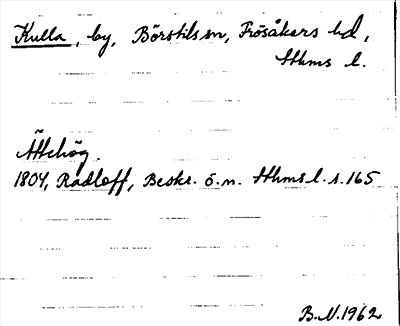 Kulla, by, Börstils sn, Frösåkers hd,
Sthms l.
Ättehög.
1804, Radloff, Beskr. ö. n. Sthms l. s. 165
B.N. 1962